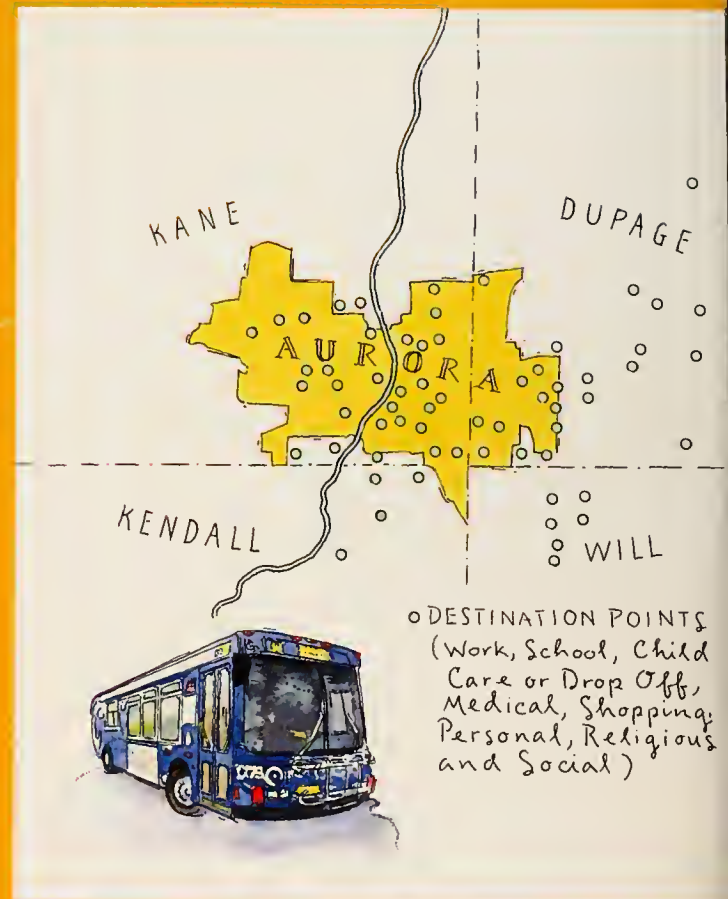 KANE
DUPAGE
AURORA
KENDALL
WILL
o DESTINATION POINTS
(Work, School, Child
Care or Drop Off,
Medical, Shopping,
Personal, Religious
and Social)